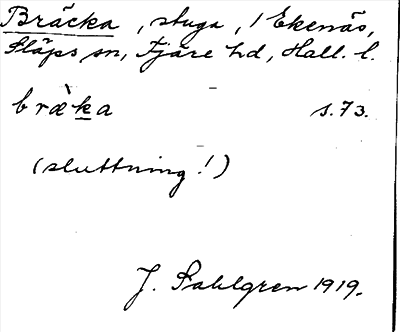 Bräcka, stuga, / Ekenäs,
Släps sn, Fjäre hd, Hall. l.
bræ̀ka s. 73.
(sluttning!)
J. Sahlgren 1919.